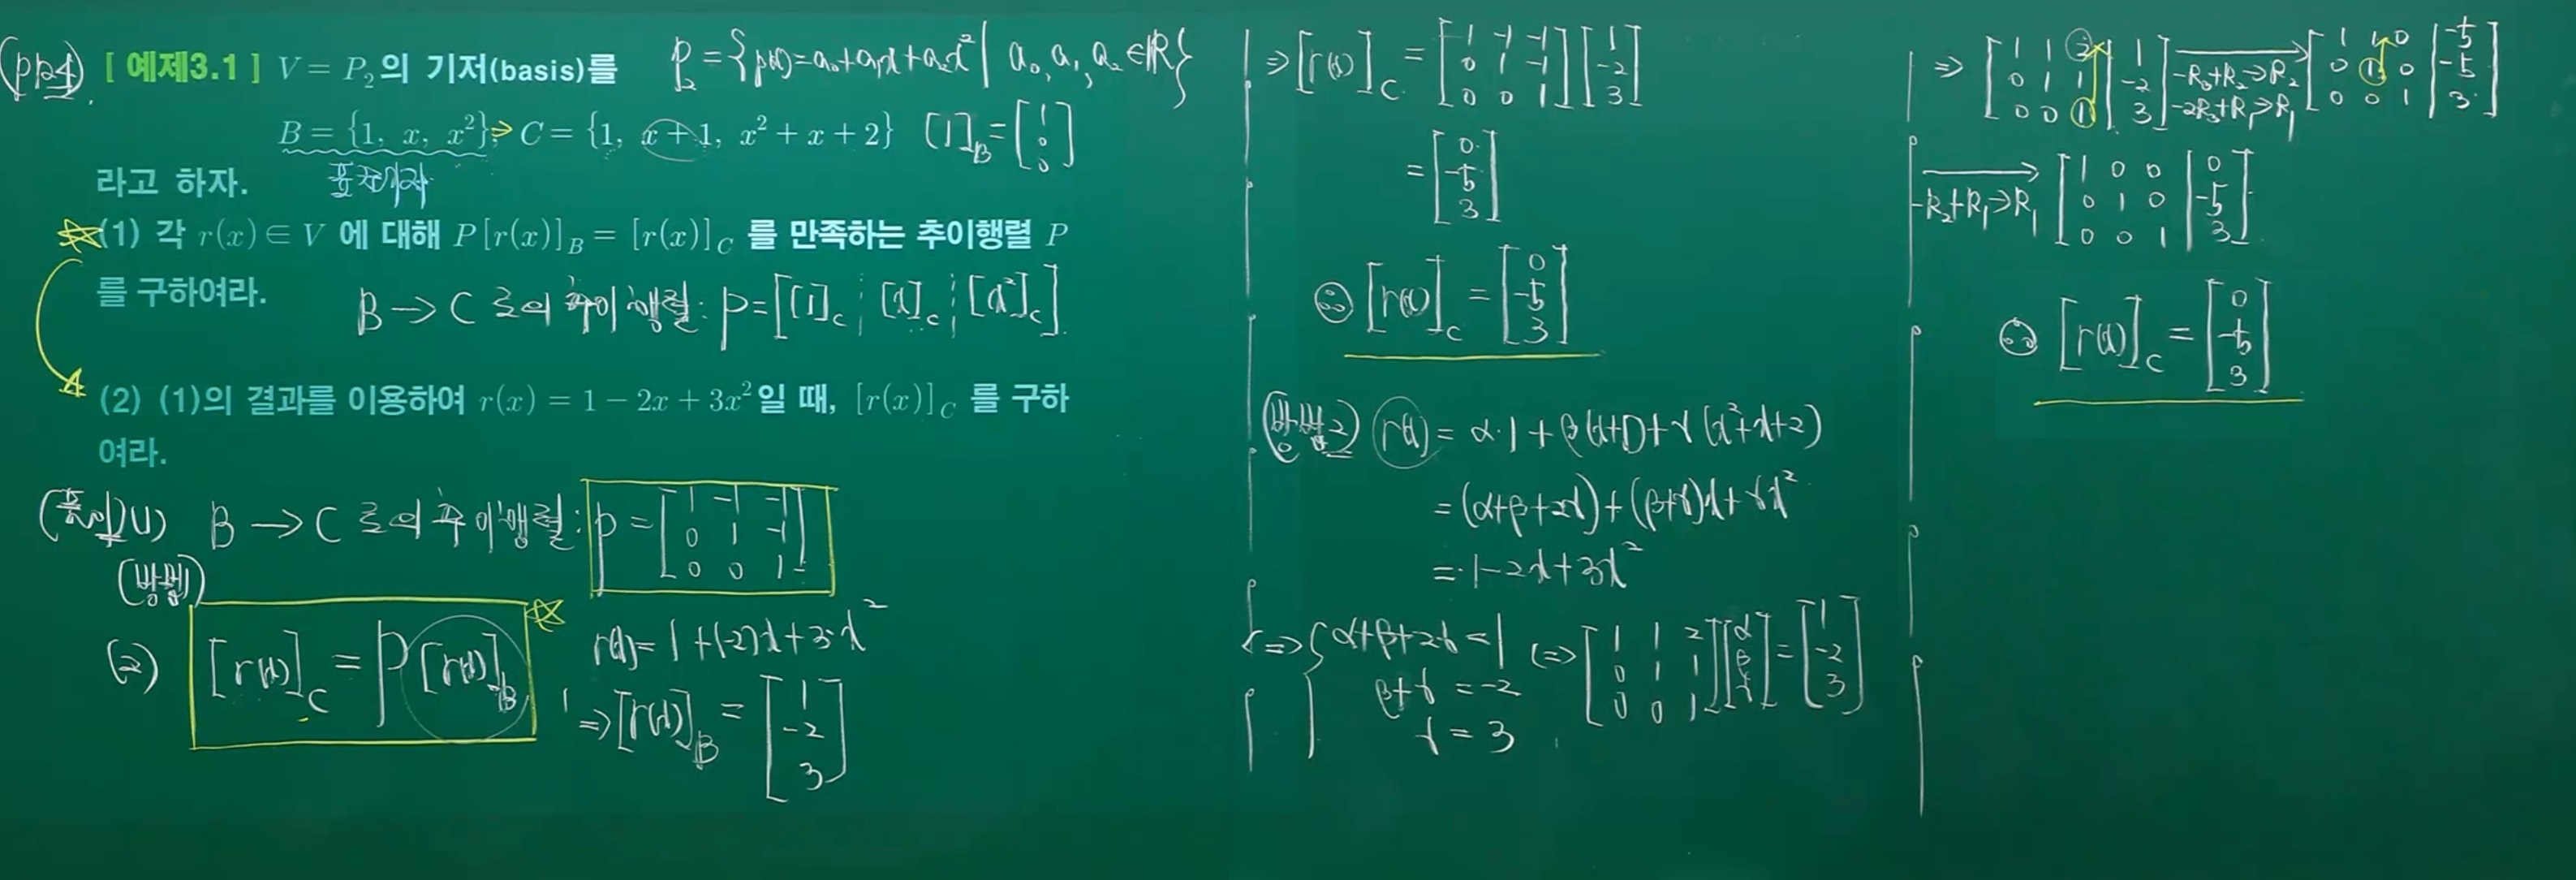 (p124) [ 예제3.1 ] V = P₂의 기저(basis)를 P₂ = {p(x)=a₀+a₁x+a₂x² | a₀, a₁, a₂ ∈ ℝ}
B = {1, x, x²}; ⇒ C = {1, x+1, x² + x + 2} [1]_B = [1; 0; 0]
라고 하자. 표준기저
(1) 각 r(x) ∈ V 에 대해 P[r(x)]_B = [r(x)]_C 를 만족하는 추이행렬 P
를 구하여라. B → C 로의 추이행렬: P = [[1]_C ⋮ [x]_C ⋮ [x²]_C]
(2) (1)의 결과를 이용하여 r(x) = 1 − 2x + 3x² 일 때, [r(x)]_C 를 구하
여라.
(풀이) (1) B → C 로의 추이행렬: P = [1 -1 -1; 0 1 -1; 0 0 1]
(방법1)
(2) [r(x)]_C = P[r(x)]_B
r(x) = 1 + (-2)x + 3·x²
⇒ [r(x)]_B = [1; -2; 3]
⇒ [r(x)]_C = [1 -1 -1; 0 1 -1; 0 0 1] [1; -2; 3]
= [0; -5; 3]
∴ [r(x)]_C = [0; -5; 3]
(방법2) r(x) = α·1 + β(x+1) + γ(x²+x+2)
= (α+β+2γ) + (β+γ)x + γx²
= 1-2x+3x²
⇔ { α+β+2γ = 1
β+γ = -2
γ = 3
⇔ [1 1 2; 0 1 1; 0 0 1] [α; β; γ] = [1; -2; 3]
⇒ [1 1 2 | 1; 0 1 1 | -2; 0 0 1 | 3] -R₃+R₂→R₂ -2R₃+R₁→R₁ [1 1 0 | -5; 0 1 0 | -5; 0 0 1 | 3]
-R₂+R₁→R₁ [1 0 0 | 0; 0 1 0 | -5; 0 0 1 | 3]
∴ [r(x)]_C = [0; -5; 3]